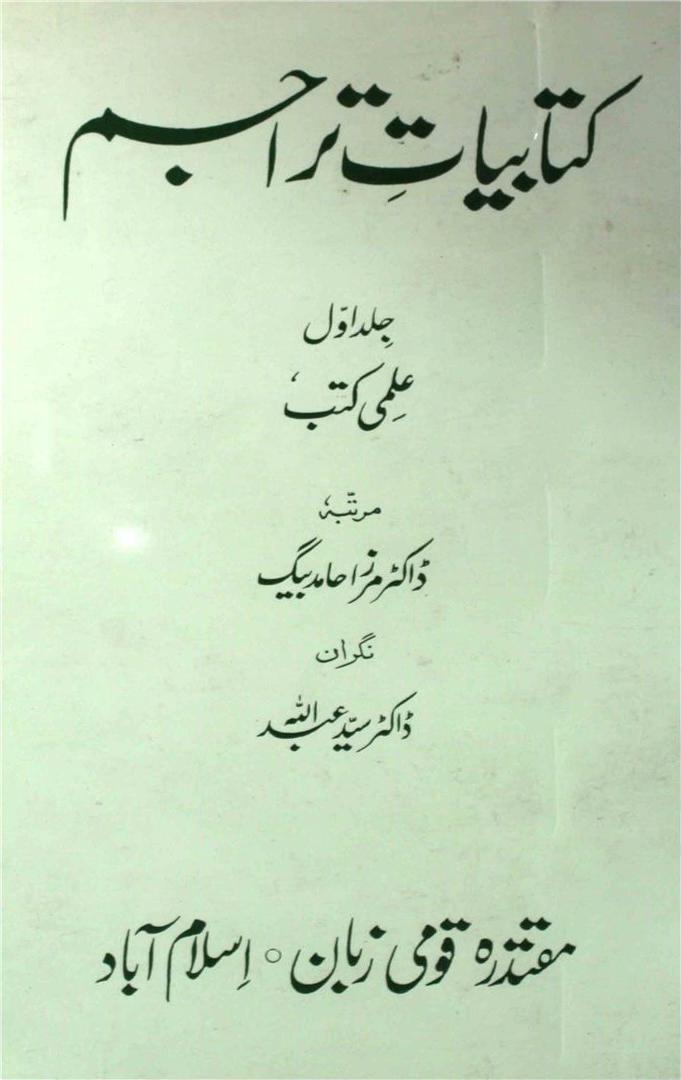 کتابیاتِ تراجم
جِلد اوّل
عِلمی کتب
مرتّبہ
ڈاکٹر مرزا حامد بیگ
نگران
ڈاکٹر سیّد عبداللہ
مقتدرہ قومی زبان ○ اِسلام آباد